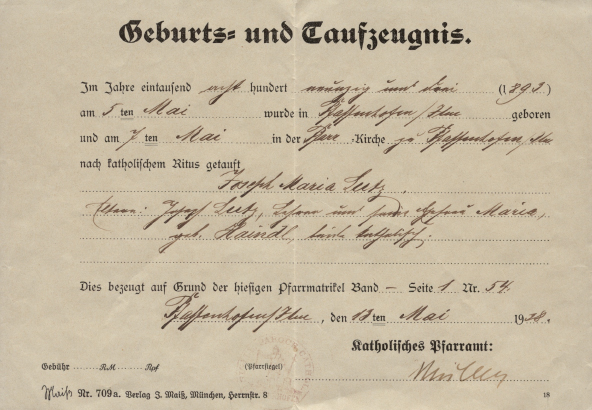 Geburts- und Taufzeugnis.
Im Jahre eintausend acht hundert neunzig und drei (1893)
am 5ten Mai wurde in Pfaffenhofen/Ilm geboren
und am 7ten Mai in der Pfarr-Kirche zu Pfaffenhofen, Ilm
nach katholischem Ritus getauft
Joseph Maria Lutz.
Eltern: Josef Lutz, Lehrer und seine Ehefrau Maria,
geb. Haindl, beide katholisch.
Dies bezeugt auf Grund der hiesigen Pfarrmatrikel Band – Seite 1 Nr. 54.
Pfaffenhofen/Ilm, den 13ten Mai 1938.
Katholisches Pfarramt:
Gebühr RM Rpf
(Pfarrsiegel)
Maiß Nr. 709a. Verlag J. Maiß, München, Herrnstr. 8
18